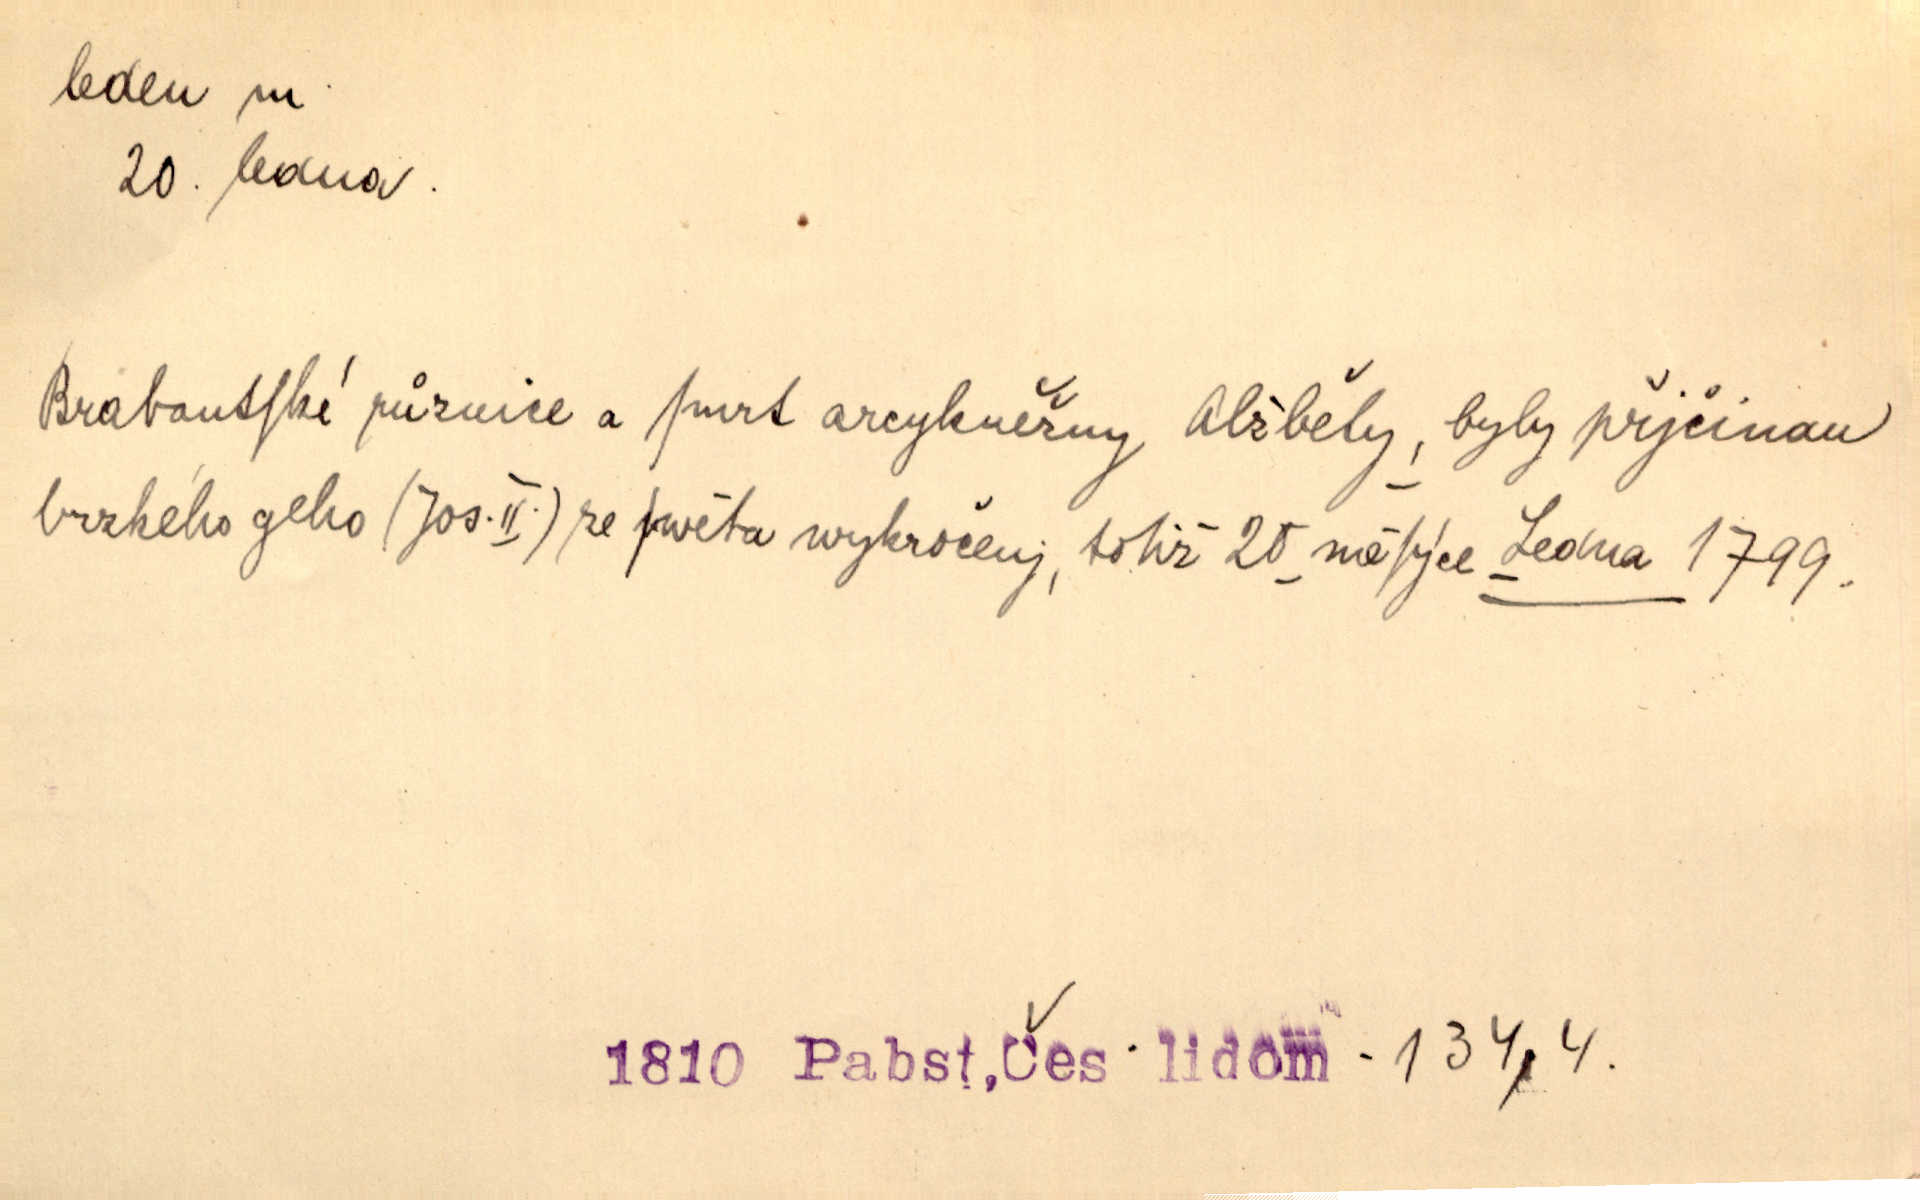 leden m.
20. ledna.
Brabantſké různice a ſmrt arcykněžny Alžběty, byly přjčinau
brzkého geho (Jos. II.) ze ſwěta wykročenj, totiž 20 měſýce Ledna 1799.
1810 Pabst, Čes. lidom - 134, 4.